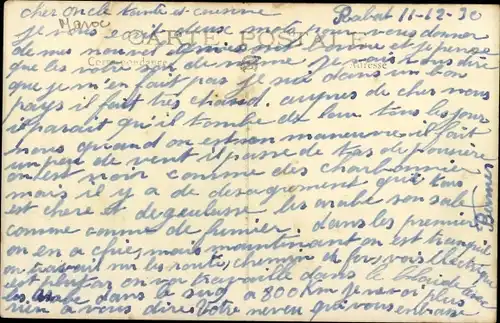 cher oncle tante et cousine Rabat 11-12-30
Maroc
CARTE POSTALE
Correspondance Adresse
je vous écrit deux mots pour vous donner
de mes nouvel et je pense
que les votre son de même je vais vous dire
que je m'en fait pas je suis dans un bon
pays il fait très chaud. auprès de cher nous
il parait qu'il tombe de l'eau tous les jour
nous quand on est en maneuvre il fait
un peu de vent il passe de tas de pousière
on est noir comme des charbonnier
mais il y a de désagrement que tous
est chere et degeulasse les arabe son sale
comme comme de fumier. dans les premier
on en a mais maintenant on est tranquil
on travail sur les route, chemin de fer, voie électrique
on va travaille dans le
les arabe dans le sug a 800 Km je ne voi plus
rien a vous dire votre neveu qui vous embrasse